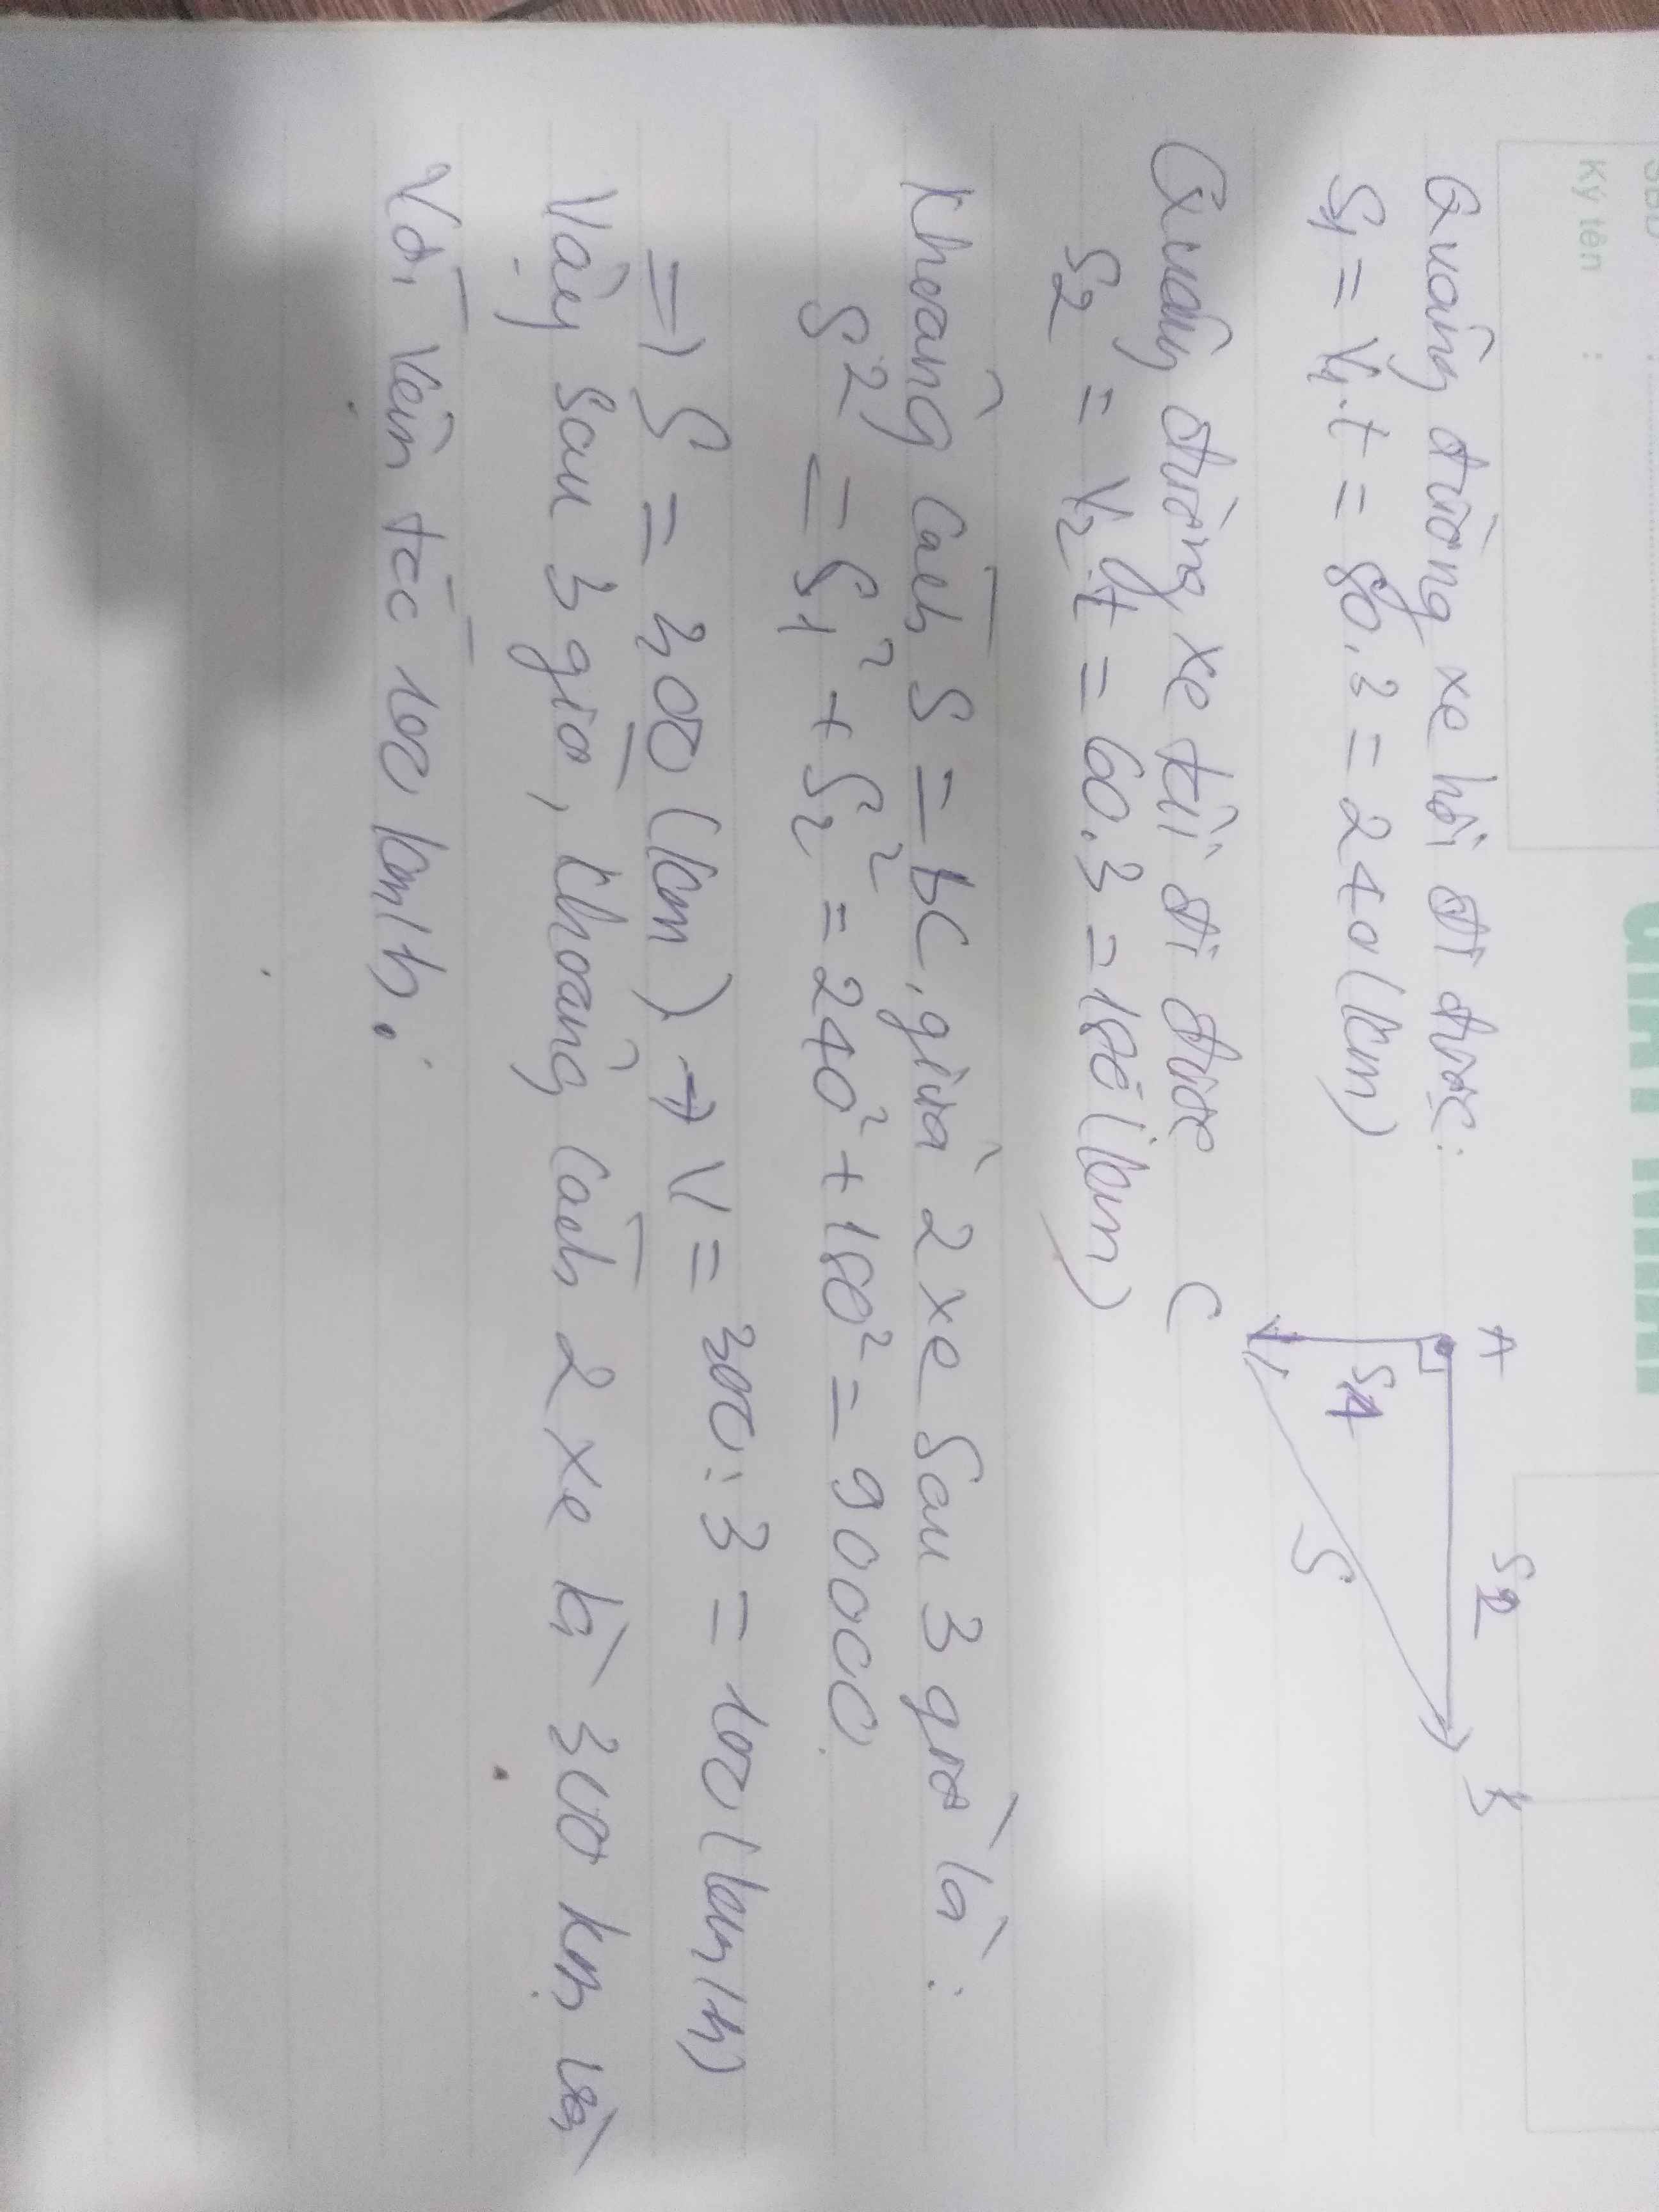 Ký tên :
A
S2
B
Quãng đường xe hơi đi được:
S1 = V1.t = 80.3 = 240 (km)
S1
S
C
Quãng đường xe tải đi được
S2 = V2.t = 60.3 = 180 (km)
Khoảng cách S = bC, giữa 2 xe sau 3 giờ là:
S2 = S1² + S2² = 240² + 180² = 90000
=> S = 300 (km) → V = 300:3 = 100 (km/h)
Vậy sau 3 giờ, khoảng cách 2 xe là 300 km và
Với vận tốc 100 km/h.